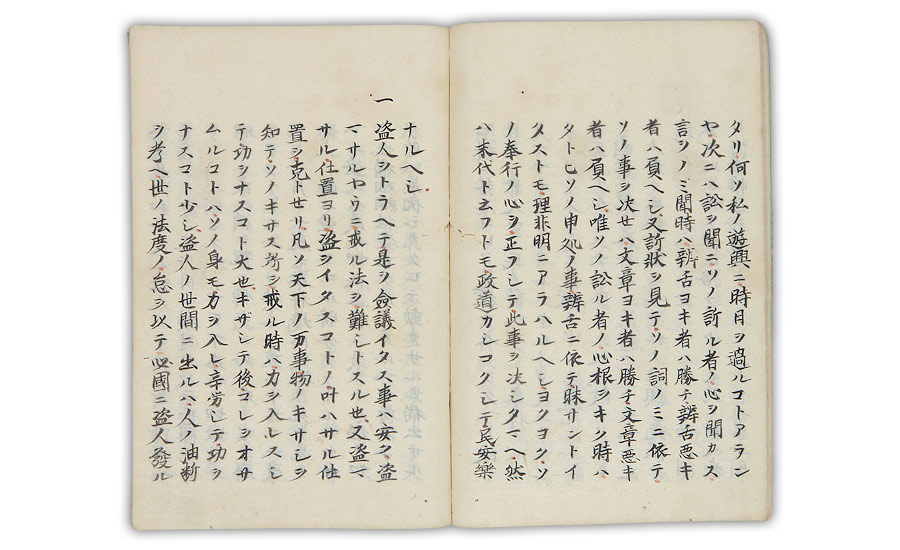 タリ何ソ私ノ遊興ニ時日ヲ過ルコトアラン
ヤ次ニハ訟ヲ聞ニソノ訴ル者ノ心ヲ聞カス
言シノミ聞時ハ辨舌ヨキ者ハ勝チ辨舌悪キ
者ハ負ヘシ又訴狀ヲ見テソノ詞ノミニ依テ
ソノ事ヲ決セハ文章ヨキ者ハ勝チ文章悪キ
者ハ負ヘシ唯ソノ訟ル者ノ心根ヲキク時ハ
タトヒソノ申処ノ事辨舌ニ依テ昧サントイ
タストモ理非明ニアラハルヘシヨクヨクソ
ノ奉行ノ心ヲ正フシテ此事ヲ決シタマヘ然
ハ末代ト云フトモ政道カシコクシテ民安樂
ナルヘシ
一
盗人ヲトラヘテ是ヲ僉議イタス事ハ安ク盗
マサルヤウニ戒ル法ヲ難シトスル也又盗マ
サル仕置ヨリ盗ヲイタスコトノ叶ハサル仕
置ヲ克トせリ凡ソ天下ノ万事物ノキサシヲ
知テソノキサス所ヲ戒ル時ハ力ヲ入レスシ
テ功ヲナスコト大也キザシテ後コレヲオサ
ムルコトハソノ身モ力ヲ入レ辛労シテ功ヲ
ナスコト少シ盗人ノ世間ニ出ルハ人ノ油断
ヲ考ヘ世ノ法度ノ怠ヲ以テ必國ニ盗人發ル